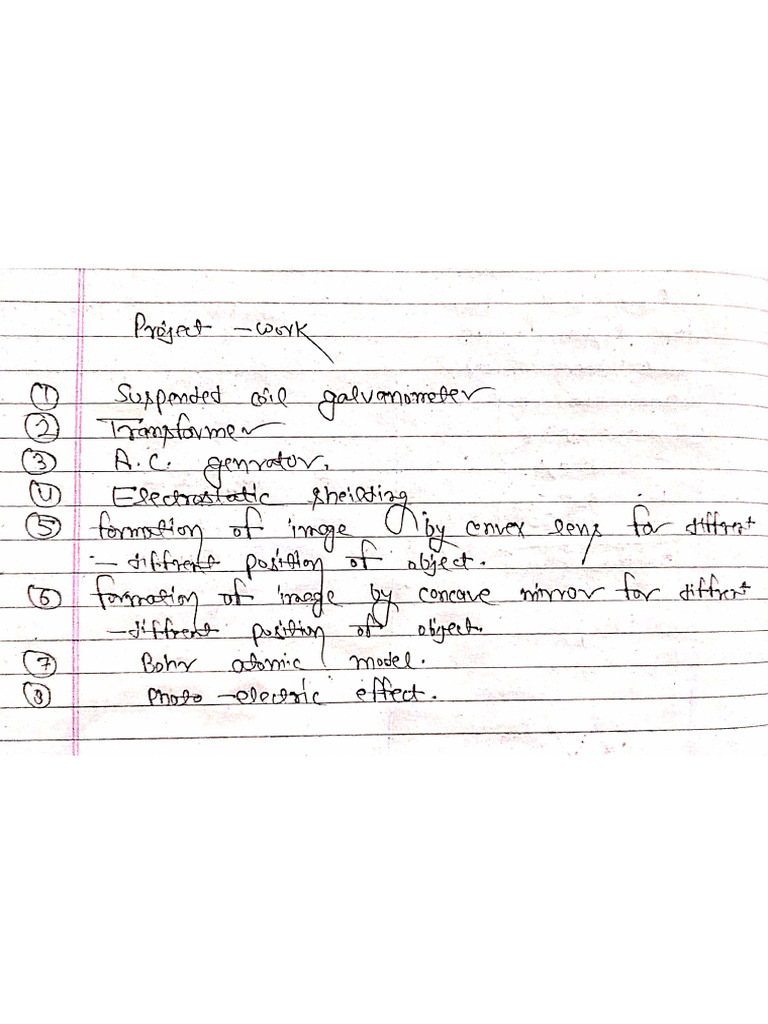 Project - work
① Suspended coil galvanometer
② Transformer
③ A.C. genrator.
④ Electrostatic sheilding
⑤ formation of image by convex lens for diffrent
- diffrent position of object.
⑥ formation of image by concave mirror for diffrent
- diffrent position of object.
⑦ Bohr atomic model.
⑧ Photo - electric effect.